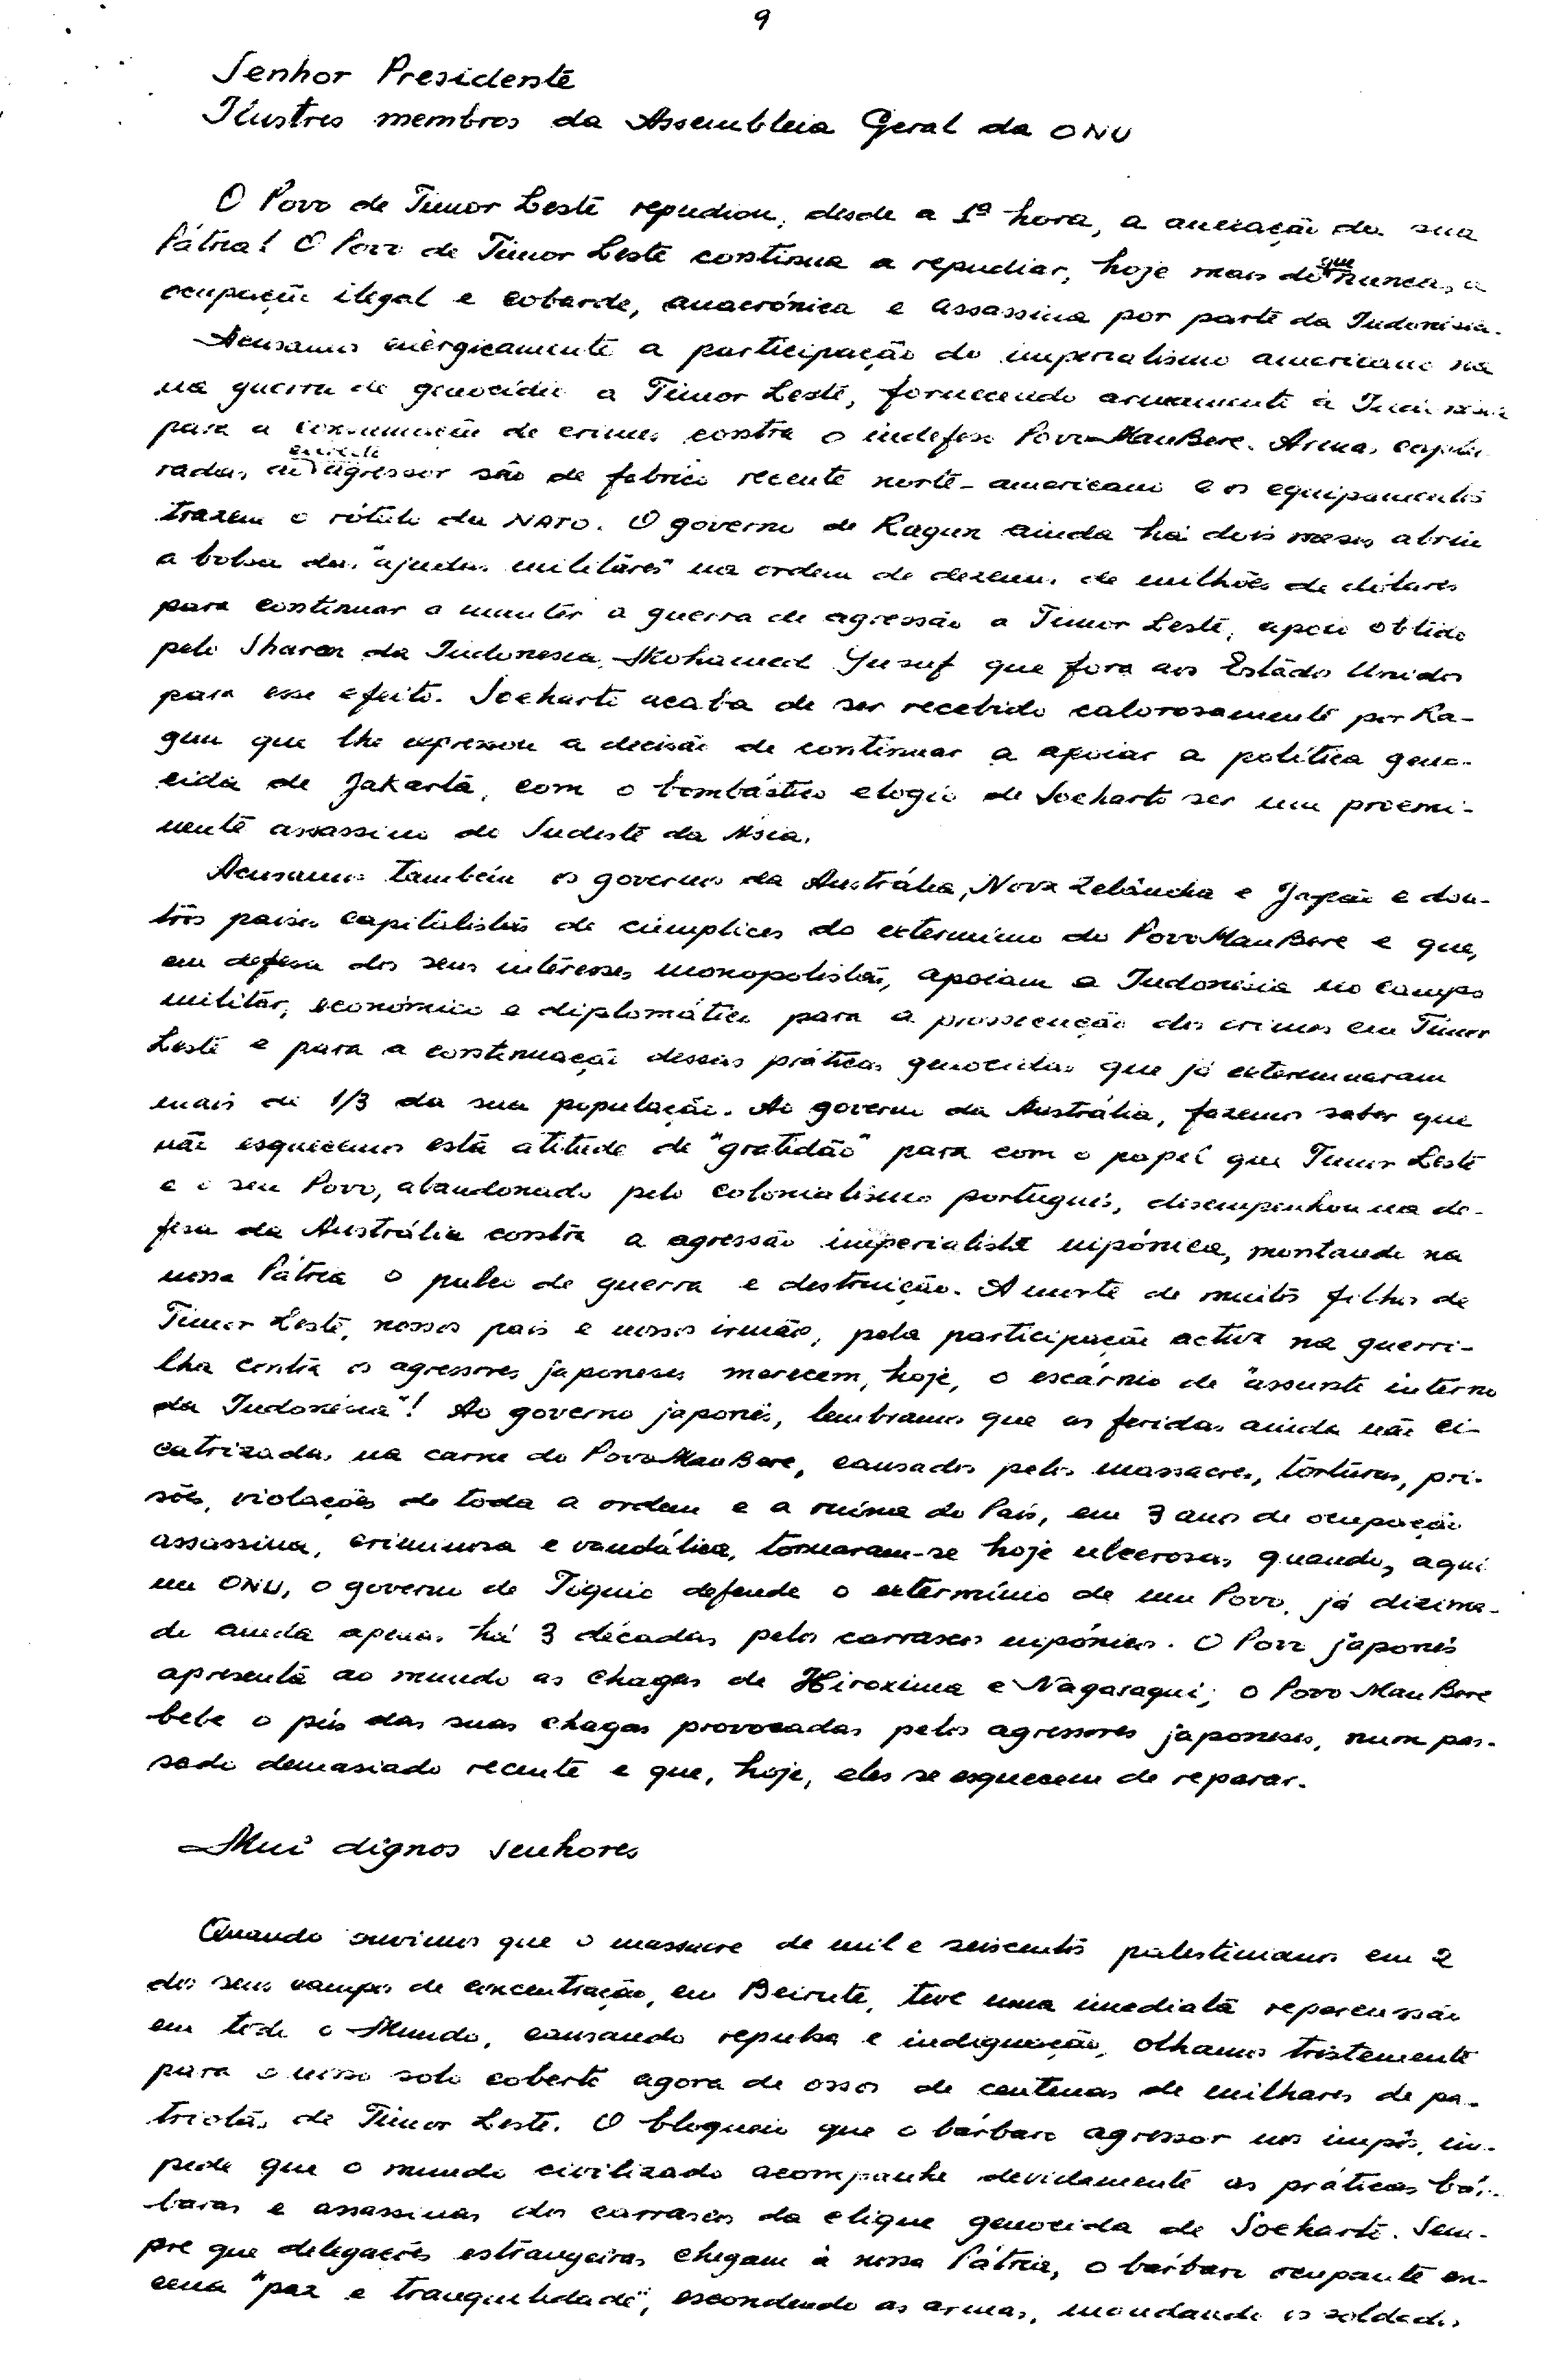 9
Senhor Presidente
Ilustres membros da Assembleia Geral da ONU
O Povo de Timor Leste repudiou, desde a 1ª hora, a anexação da sua
Pátria! O Povo de Timor Leste continua a repudiar, hoje mais do que nunca, a
ocupação ilegal e cobarde, anacrónica e assassina por parte da Indonésia.
Acusamos enèrgicamente a participação do imperialismo americano na
na guerra de genocídio a Timor Leste, fornecendo armamento à Indonésia
para a consumação de crimes contra o indefeso Povo MauBere. Armas captu-
radas ao agressor são de fabrico recente norte-americano e os equipamentos
trazem o rótulo da NATO. O governo de Ragan ainda há dois meses abriu
a bolsa das "ajudas militares" na ordem de dezenas de milhões de dólares
para continuar a manter a guerra de agressão a Timor Leste, apoio obtido
pelo Sharon da Indonésia, Mohamed Yusuf que fora aos Estados Unidos
para esse efeito. Soeharto acaba de ser recebido calorosamente por Ra-
gan que lhe expressou a decisão de continuar a apoiar a política geno-
cida de Jakarta, com o bombástico elogio de Soeharto ser um proemi-
nente assassino do Sudeste da Ásia.
Acusamos também os governos da Austrália, Nova Zelândia e Japão e dou-
tros países capitalistas de cúmplices do extermínio do Povo MauBere e que,
em defesa dos seus interesses monopolistas, apoiam a Indonésia no campo
militar, económico e diplomático para a prossecução dos crimes em Timor
Leste e para a continuação dessas práticas genocidas que já exterminaram
mais de 1/3 da sua população. Ao governo da Austrália, fazemos saber que
não esquecemos esta atitude de "gratidão" para com o papel que Timor Leste
e o seu Povo, abandonado pelo colonialismo português, desempenhou na de-
fesa da Austrália contra a agressão imperialista nipónica, montando na
nossa Pátria o palco de guerra e destruição. A morte de muitos filhos de
Timor Leste, nossos pais e nossos irmãos, pela participação activa na guerri-
lha contra os agressores japoneses merecem, hoje, o escárnio de "assunto interno
da Indonésia"! Ao governo japonês, lembramos que as feridas ainda não ci-
catrizadas na carne do Povo MauBere, causados pelos massacres, torturas, pri-
sões, violações de toda a ordem e a ruína do País, em 3 anos de ocupação
assassina, criminosa e vandálica, tornaram-se hoje ulcerosas quando, aqui
na ONU, o governo de Tóquio defende o extermínio de um Povo, já dizima-
do ainda apenas há 3 décadas pelos carrascos nipónicos. O Povo japonês
apresenta ao mundo as chagas de Hiroxima e Nagasaqui; o Povo MauBere
bebe o pús das suas chagas provocadas pelos agressores japoneses, num pas-
sado demasiado recente e que, hoje, eles se esquecem de reparar.
Mui dignos senhores
Quando ouvimos que o massacre de mil e seiscentos palestinianos em 2
dos seus campos de concentração, em Beirute, teve uma imediata repercussão
em todo o Mundo, causando repulsa e indignação, olhamos tristemente
para o nosso solo coberto agora de ossos de centenas de milhares de pa-
triotas de Timor Leste. O bloqueio que o bárbaro agressor nos impôs, im-
pede que o mundo civilizado acompanhe devidamente as práticas bár-
baras e assassinas dos carrascos da clique genocida de Soeharto. Sem-
pre que delegações estrangeiras chegam à nossa Pátria, o bárbaro ocupante en-
cena "paz e tranquilidade", escondendo as armas, mandando os soldados